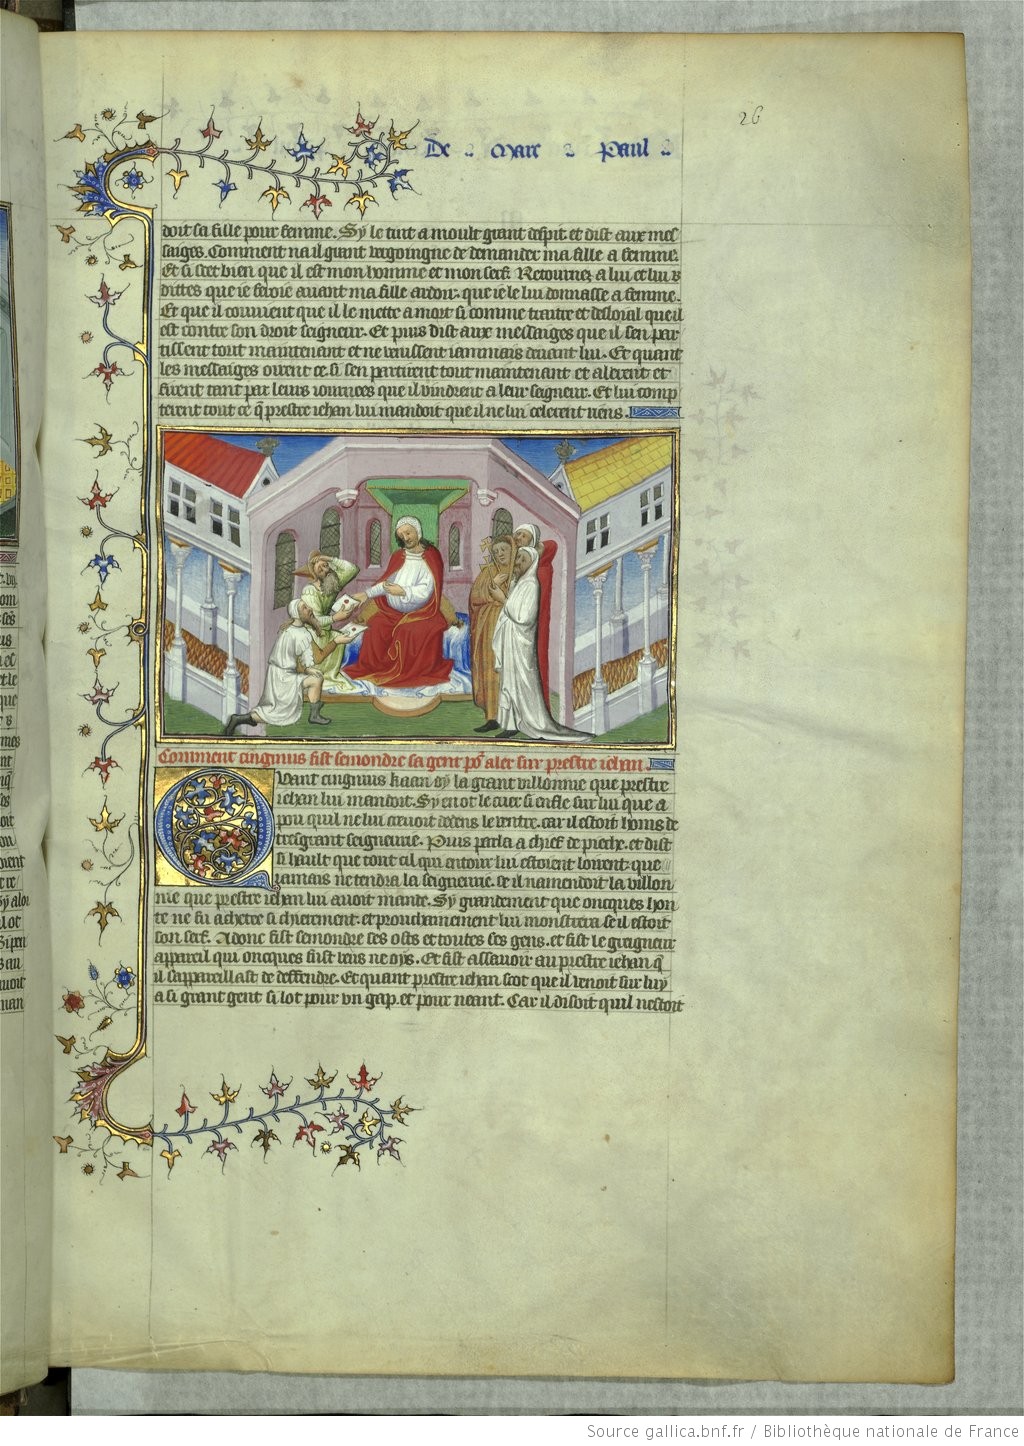 26
De Marc Paul
doit sa fille pour femme. Sy le tint a moult grant despit et dist aux mes
saiges. Comment na il grant vergoingne de demander ma fille a femme.
Et si scet bien que il est mon homme et mon serf. Retournez a lui et lui
dittes que ie feroie auant ma fille ardoir. que ie le lui donnasse a femme.
Et que il conuient que il le mette a mort si comme traitre et desloial que il
est contre son droit seigneur. Et puis dist aux messaiges que il sen par
tissent tout maintenant et ne venissent iammais deuant lui. Et quant
les messaiges oirent ce. si sen partirent tout maintenant et alerent et
firent tant par leurs iournees que il vindrent a leur seigneur. Et lui comp
terent tout ce q̄ prestre iehan lui mandoit que il ne lui celerent riens.
Comment cinguius fist semondre sa gent po᷑ aler sur prestre iehan.
Quant cinguius kaan oy la grant villonnie que prestre
iehan lui mandoit. Sy en ot le cuer si enfle sur lui que a
pou quil ne lui creuoit dedens le ventre. car il estoit homs de
tresgrant seigneurie. Puis parla a chief de pieche. et dist
si hault que tout cil qui entour lui estoient loirent. que
iamais ne tendra la seigneurie. se il namendoit la villon
nie que prestre iehan lui auoit mande. Sy grandement que oncques hon
te ne fu achetee si chierement. et prouchainement lui monstrera se il estoit
son serf. Adonc fist semondre ses osts et toutes ses gens. et fist le greigneur
appareil qui oncques fust veus ne oys. Et fist assauoir au prestre iehan q̄
il sappareillast de deffendre. Et quant prestre iehan scot que il venoit sur luy
a si grant gent si lot pour vn gap. et pour neant. Car il disoit quil nestoit
Source gallica.bnf.fr / Bibliothèque nationale de France